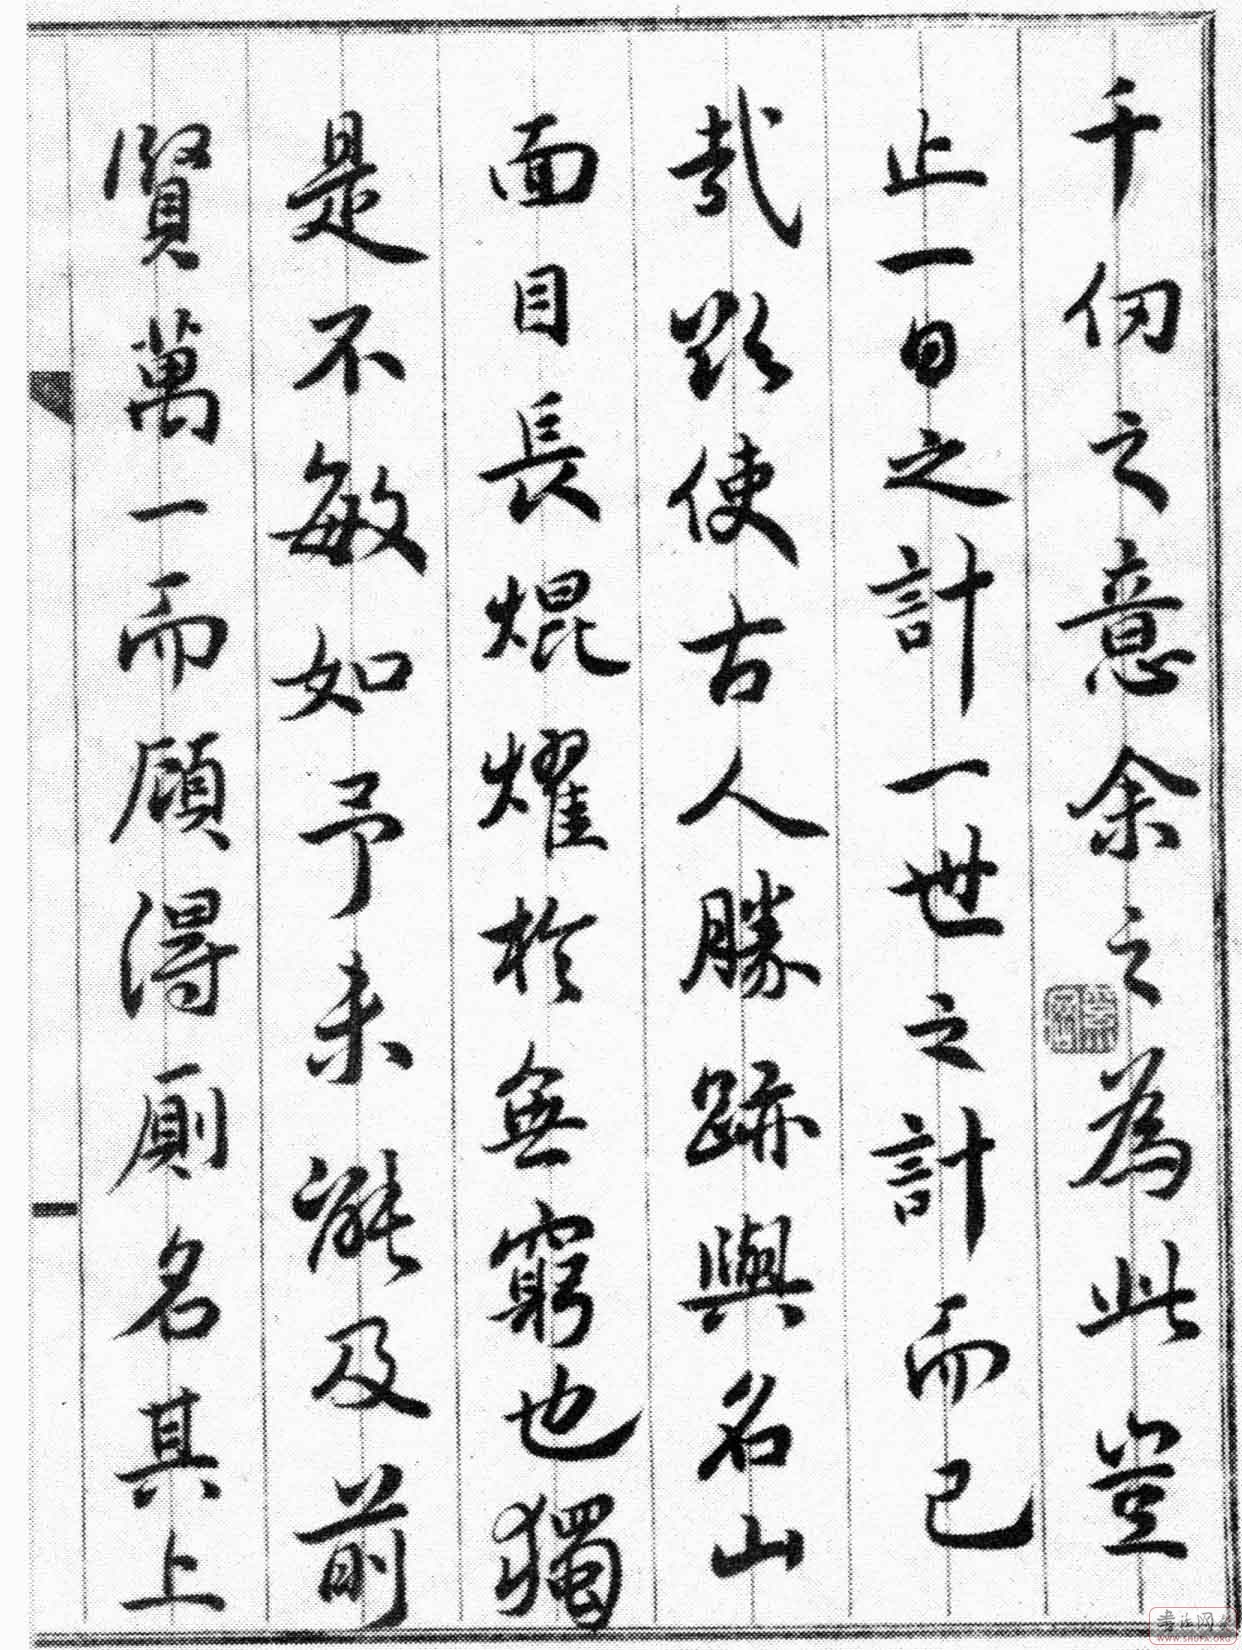 千仞之意余之為此豈
止一日之計一世之計而已
哉將使古人勝跡與名山
面目長焜耀於無窮也獨
是不敏如予未能及前
賢萬一而顧得廁名其上
WWW.SHUFA.ORG